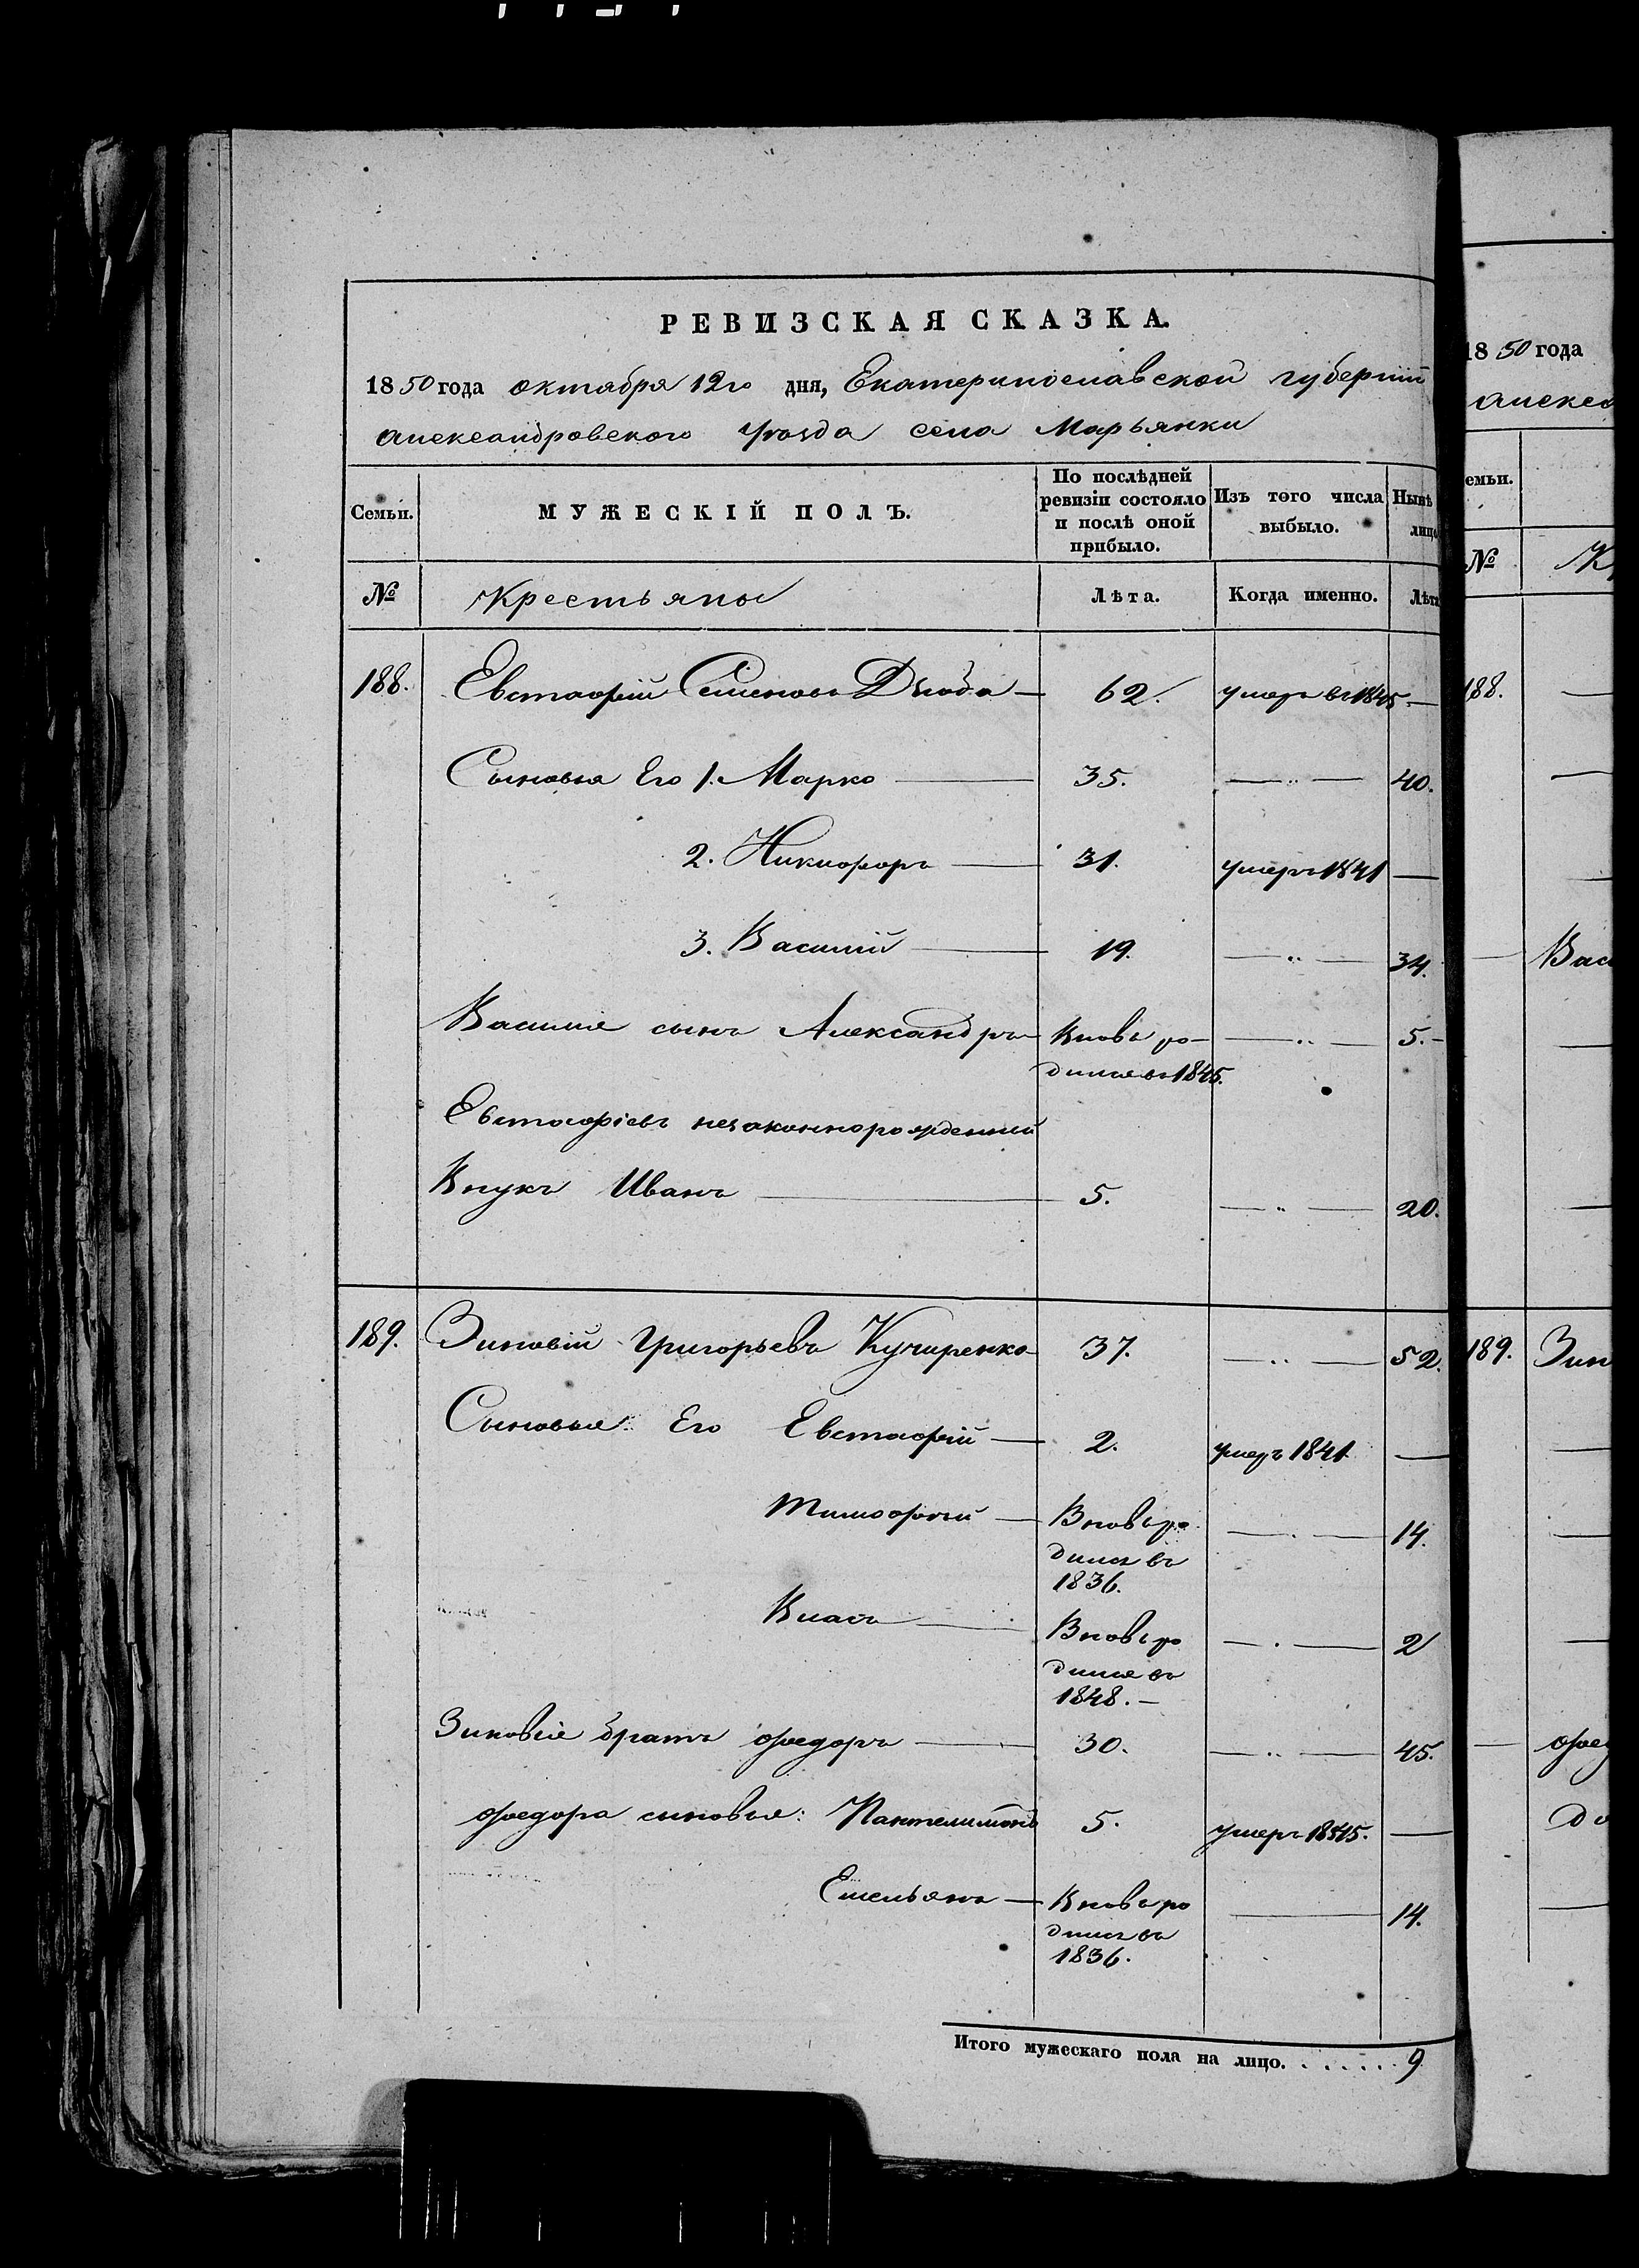 РЕВИЗСКАЯ СКАЗКА.
1850 года октября 12го дня, Екатеринославской губернии
Александровского уѣзда села Марьянки
Семьи. МУЖЕСКІЙ ПОЛЪ. По послѣдней ревизіи состояло и послѣ оной прибыло. Изъ того числа выбыло. Нынѣ лицо
№ Крестьяны Лѣта. Когда именно. Лѣта
188. Евстафій Семеновъ Дзюба — 62. умеръ въ 1845. —
Сыновья Его 1. Марко — 35. — „ — 40.
2. Никифоръ — 31. умеръ 1841 —
3. Василий — 19. — „ — 34.
Василия сынъ Александръ Вновь ро- — „ — 5. -
дился въ 1845.
Евстафіевъ незаконнорожденный
Внукъ Иванъ — 5. — „ — 20.
189. Зиновій Григорьевъ Кучиренко 37. — „ — 52.
Сыновья: Его Евстафій — 2. умеръ 1841 —
Тимофѣй — Вновь ро — „ — 14.
дился въ
1836.
Власъ — Вновь ро — „ — 2
дился въ
1848. —
Зиновія братъ Федоръ — 30. — „ — 45.
Федора сыновья: Пантелимонъ 5. умеръ 1845. —
Емельянъ — Вновь ро — 14.
дился въ
1836.
Итого мужескаго пола на лицо. . . . . . . 9
1850 года
Алексa
емьи.
№ К
188. —
Вас
189. Зин
Фед
До